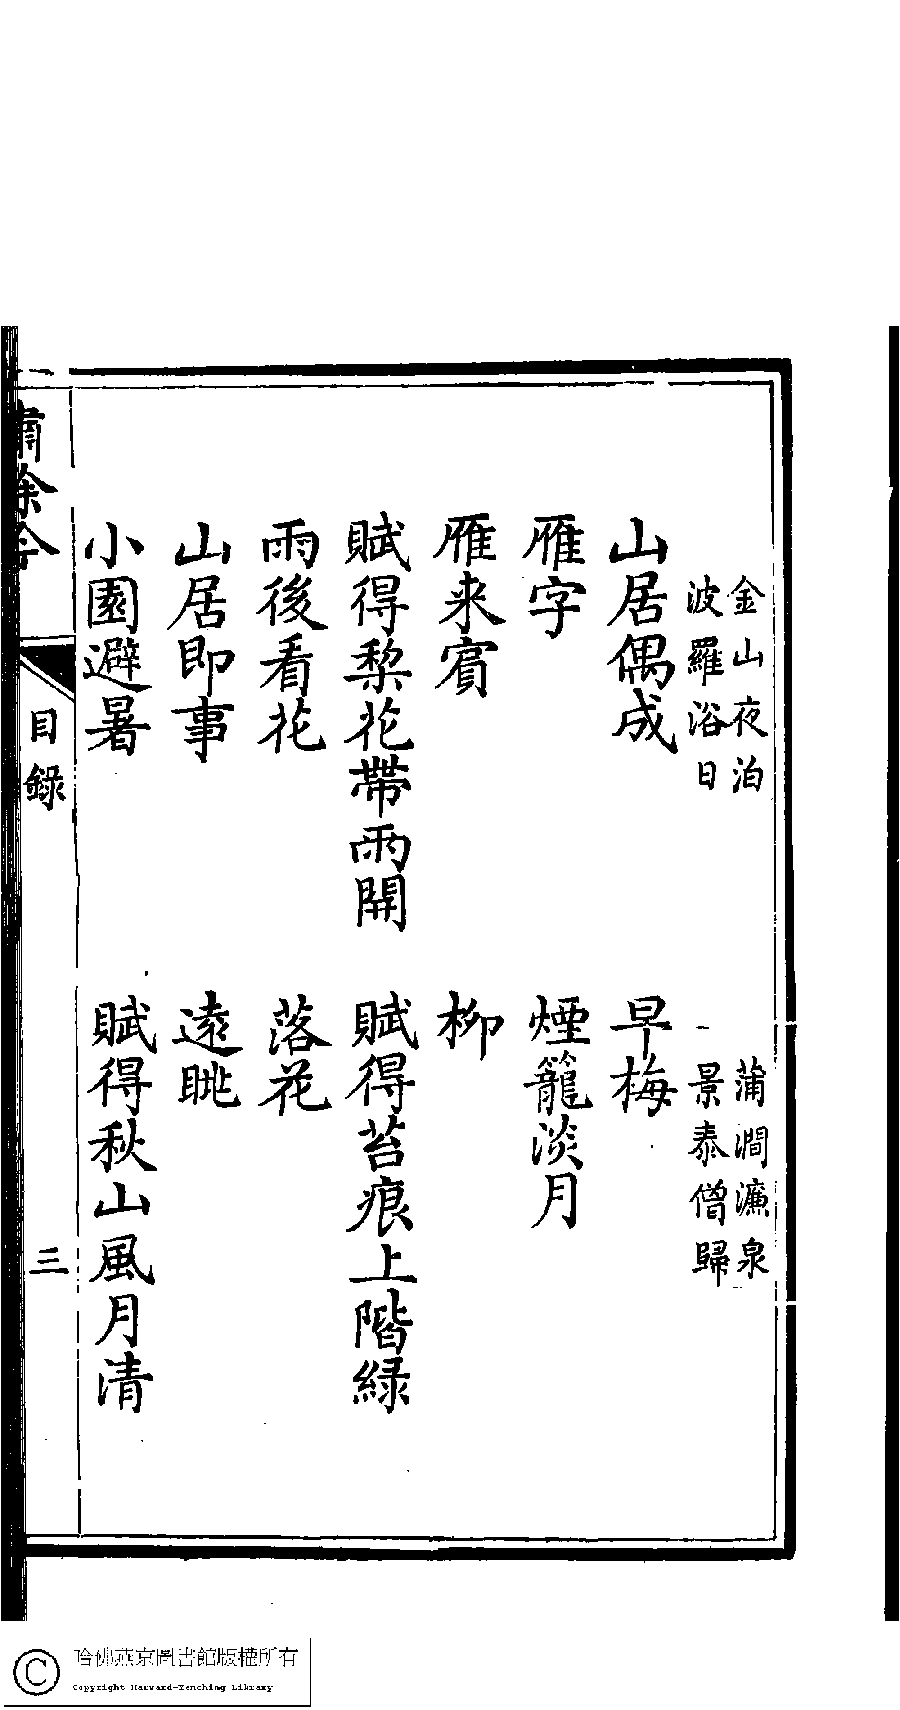 金山夜泊　蒲澗濂泉
波羅浴日　景泰僧歸
山居偶成　早梅
雁字　煙籠淡月
雁来賓　柳
賦得梨花帶雨開　賦得苔痕上階緑
雨後看花　落花
山居即事　遠眺
小園避暑　賦得秋山風月清
目錄
三
哈佛燕京圖書館版權所有
Copyright Harvard-Yenching Library